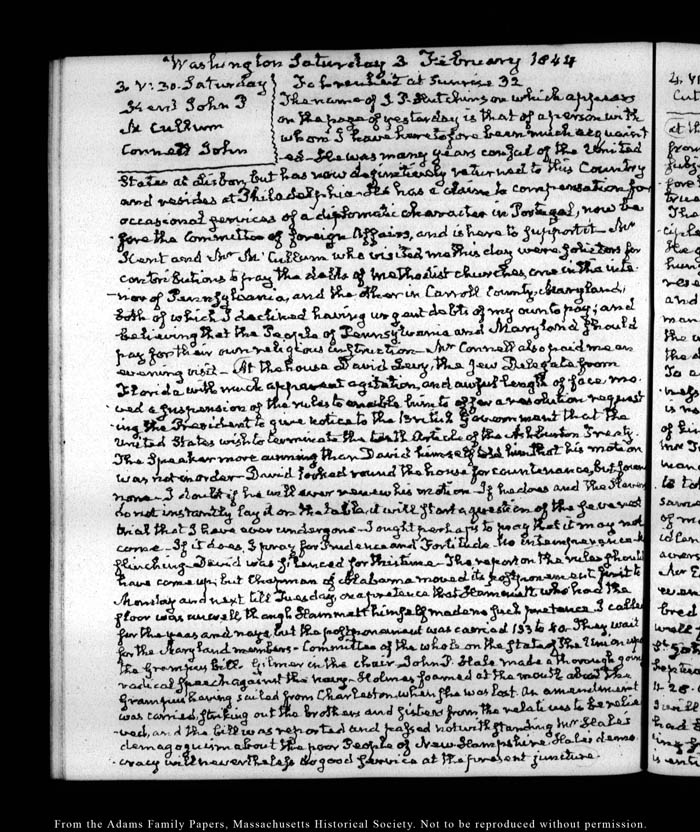 Washington Saturday 3 February 1844
3. V: 30. Saturday
Kent John P
Mc Cullum
Connell John
Fahrenheit at Sunrise 32
The name of J. P. Hutchinson which appears
on the page of yesterday is that of a person with
whom I have heretofore been much acquaint
ed. He was many years consul of the United
States at Lisbon, but has now definitively returned to this Country
and resides at Philadelphia. He has a claim to compensation for
occasional services of a diplomatic character in Portugal, now be
fore the Committee of foreign Affairs, and is here to support it — Mr
Kent and Mr Mc Cullum who visited me this day were solicitors for
contributions to pay the debts of Methodist churches, one in the inte
rior of Pennsylvania, and the other in Carroll County, Maryland,
both of which I declined having urgent debts of my own to pay; and
believing that the People of Pennsylvania and Maryland should
pay for their own religious instruction — Mr Connell also paid me an
evening visit — At the house David Levy, the Jew Delegate from
Florida with much apparent agitation, and awful length of face, mo
ved a suspension of the rules to enable him to offer a resolution request
ing the President to give notice to the British Government that the
United States wish to terminate the tenth Article of the Ashburton Treaty.
The Speaker more cunning than David himself told him that his motion
was not in order — David looked round the house for countenance, but found
none — I doubt if he will ever renew his motion — If he does and the Slavers
do not instantly lay it on the table, it will start a question of the severest
trial that I have ever undergone — I ought perhaps to pray that it may not
come — If it does, I pray for Prudence and Fortitude. No intemperance. No
flinching. David was silenced for this time. The report on the rules should
have come up; but Chapman of Alabama moved its postponement first to
Monday and next till Tuesday, on a pretence that Hammett who had the
floor was unwell though Hammett himself made no such pretence. I called
for the yeas and nays, but the postponement was carried 133 to 40. They wait
for the Maryland members — Committee of the whole on the State of the Union upon
the Grampus Bill. Gilmer in the chair John P. Hale made a thorough going
radical speech against the navy. Holmes foamed at the mouth about the
Grampus having sailed from Charleston when she was lost. An amendment
was carried, striking out the brothers and sisters from the relatives to be relie
ved, and the bill was reported and passed notwithstanding Mr Hale's
demagoguism about the poor People of New Hampshire. Hale's demo
cracy will nevertheless do good service at the present juncture.
From the Adams Family Papers, Massachusetts Historical Society. Not to be reproduced without permission.